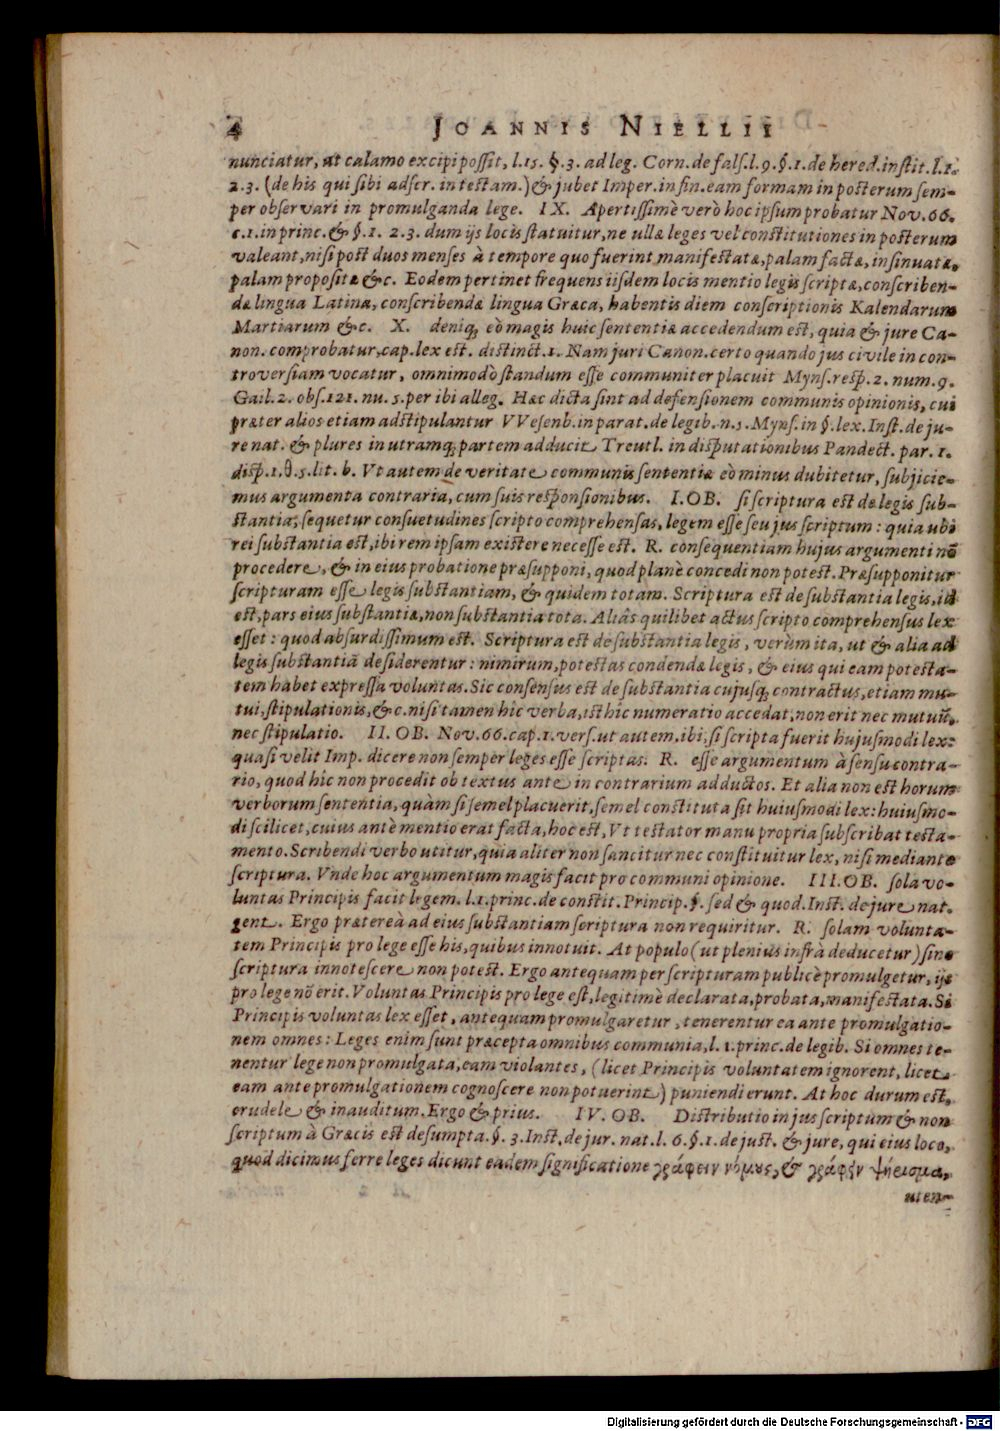 4 JOANNIS NIELLII
nunciatur, ut calamo excipi possit, l. 15. §. 3. ad leg. Corn. de fals. l. 9. §. 1. de hered. instit. l. 1.
2. 3. (de his qui sibi adscr. in testam.) & jubet Imper. in fin. eam formam in posterum sem-
per observari in promulganda lege. IX. Apertissimè verò hoc ipsum probatur Nov. 66.
c. 1. in princ. & §. 1. 2. 3. dum ijs locis statuitur, ne ullæ leges vel constitutiones in posterum
valeant, nisi post duos menses à tempore quo fuerint manifestatæ, palam factæ, insinuatæ,
palam propositæ &c. Eodem pertinet frequens iisdem locis mentio legis scriptæ, conscriben-
dæ lingua Latina, conscribendæ lingua Græca, habentis diem conscriptionis Kalendarum
Martiarum &c. X. deniq; eò magis huic sententiæ accedendum est, quia & jure Ca-
non. comprobatur, cap. lex est. distinct. 1. Nam juri Canon. certo quando jus civile in con-
troversiam vocatur, omnimodò standum esse communiter placuit Myns. resp. 2. num. 9.
Gail. 2. obs. 121. nu. 5. per ibi alleg. Hæc dicta sint ad defensionem communis opinionis, cui
præter alios etiam adstipulantur VVesenb. in parat. de legib. n. 5. Myns. in §. lex. Inst. de ju-
re nat. & plures in utramq; partem adducit Treutl. in disputationibus Pandect. par. 1.
disp. 1. θ. 5. lit. b. Vt autem de veritate communis sententiæ eò minus dubitetur, subjicie-
mus argumenta contraria, cum suis responsionibus. I. OB. si scriptura est de legis sub-
stantia; sequetur consuetudines scripto comprehensas, legem esse seu jus scriptum: quia ubi
rei substantia est, ibi rem ipsam existere necesse est. R. consequentiam hujus argumenti nō
procedere, & in eius probatione præsupponi, quod planè concedi non potest. Præsupponitur
scripturam esse legis substantiam, & quidem totam. Scriptura est de substantia legis, id
est, pars eius substantiæ, non substantia tota. Aliâs quilibet actus scripto comprehensus lex
esset: quod absurdissimum est. Scriptura est de substantia legis, verùm ita, ut & alia ad
legis substantiā desiderentur: nimirum, potestas condendæ legis, & eius qui eam potesta-
tem habet expressa voluntas. Sic consensus est de substantia cujusq; contractus, etiam mu-
tui, stipulationis, &c. nisi tamen hic verba, isthic numeratio accedat, non erit nec mutuū,
nec stipulatio. II. OB. Nov. 66. cap. 1. vers. ut autem, ibi, si scripta fuerit hujusmodi lex:
quasi velit Imp. dicere non semper leges esse scriptas. R. esse argumentum à sensu contra-
rio, quod hic non procedit ob textus ante in contrarium adductos. Et alia non est horum
verborum sententia, quàm si semel placuerit, semel constituta sit huiusmodi lex: huiusmo-
di scilicet, cuius antè mentio erat facta, hoc est, Vt testator manu propria subscribat testa-
mento. Scribendi verbo utitur, quia aliter non sancitur nec constituitur lex, nisi mediante
scriptura. Vnde hoc argumentum magis facit pro communi opinione. III. OB. sola vo-
luntas Principis facit legem. l. 1. princ. de constit. Princip. §. sed & quod. Inst. de jure nat.
gent. Ergo prætereà ad eius substantiam scriptura non requiritur. R. solam volunta-
tem Principis pro lege esse his, quibus innotuit. At populo (ut plenius infrà deducetur) sine
scriptura innotescere non potest. Ergo antequam per scripturam publicè promulgetur, ijs
pro lege nō erit. Voluntas Principis pro lege est, legitimè declarata, probata, manifestata. Si
Principis voluntas lex esset, antequam promulgaretur, tenerentur ea ante promulgatio-
nem omnes: Leges enim sunt præcepta omnibus communia, l. 1. princ. de legib. Si omnes te-
nentur lege non promulgata, eam violantes, (licet Principis voluntatem ignorent, licet
eam ante promulgationem cognoscere non potuerint) puniendi erunt. At hoc durum est,
crudele & inauditum. Ergo & prius. IV. OB. Distributio in jus scriptum & non
scriptum à Græcis est desumpta. §. 3. Inst. de jur. nat. l. 6. §. 1. de just. & jure, qui eius loco,
quod dicimus ferre leges dicunt eadem significatione γράφειν νόμους, & γράφην ψήφισμα,
uten-
Digitalisierung gefördert durch die Deutsche Forschungsgemeinschaft - DFG